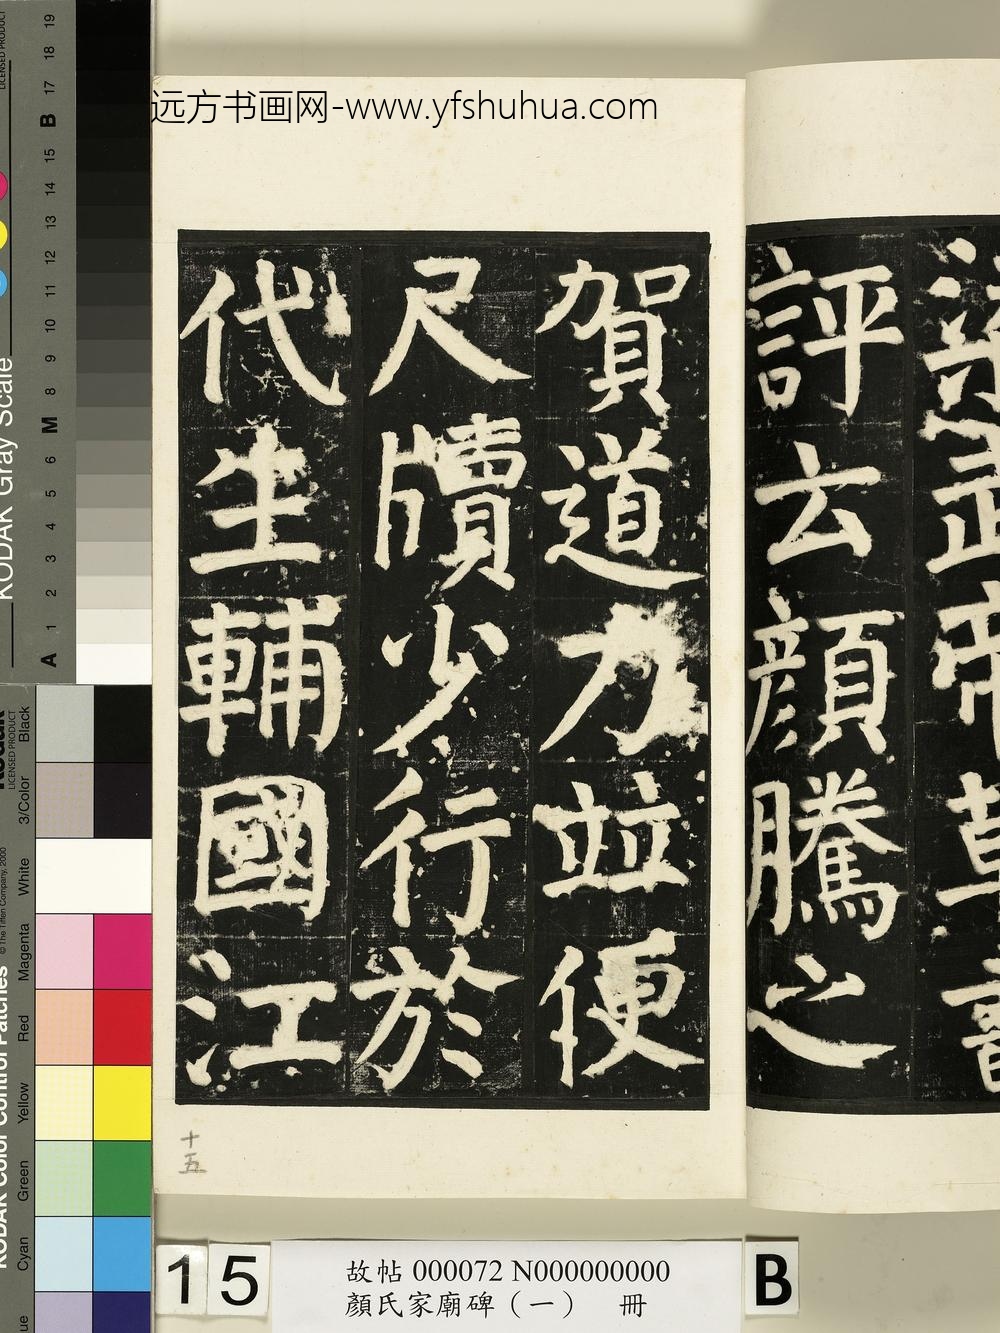 远方书画网-www.yfshuhua.com
梁武帝草書
評云顏騰之
賀道力並便
尺牘少行於
代生輔國江
十五
15
故帖 000072 N000000000
顏氏家廟碑（一） 冊
B
KODAK Gray Scale
LICENSED PRODUCT
A 1 2 3 4 5 6 M 8 9 10 11 12 13 14 15 B 17 18 19
KODAK Color Control Patches
© The Tiffen Company, 2000
Kodak
LICENSED PRODUCT
Cyan Green Yellow Red Magenta White 3/Color Black